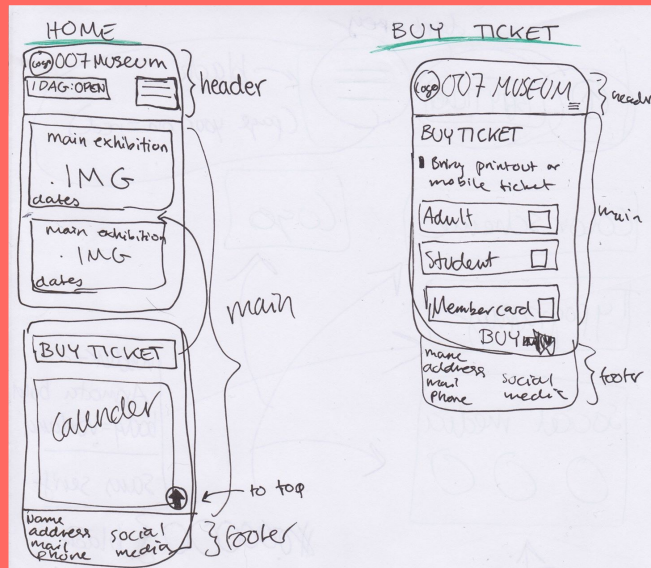 HOME
Logo 007 Museum
IDAG:OPEN
header
main exhibition
.IMG
dates
main exhibition
.IMG
dates
main
BUY TICKET
Calender
to top
Name
address
mail
phone
social
media
footer
BUY TICKET
Logo 007 MUSEUM
header
BUY TICKET
Bring printout or
mobile ticket
Adult
Student
Membercard
main
BUY
name
address
mail
phone
social
media
footer